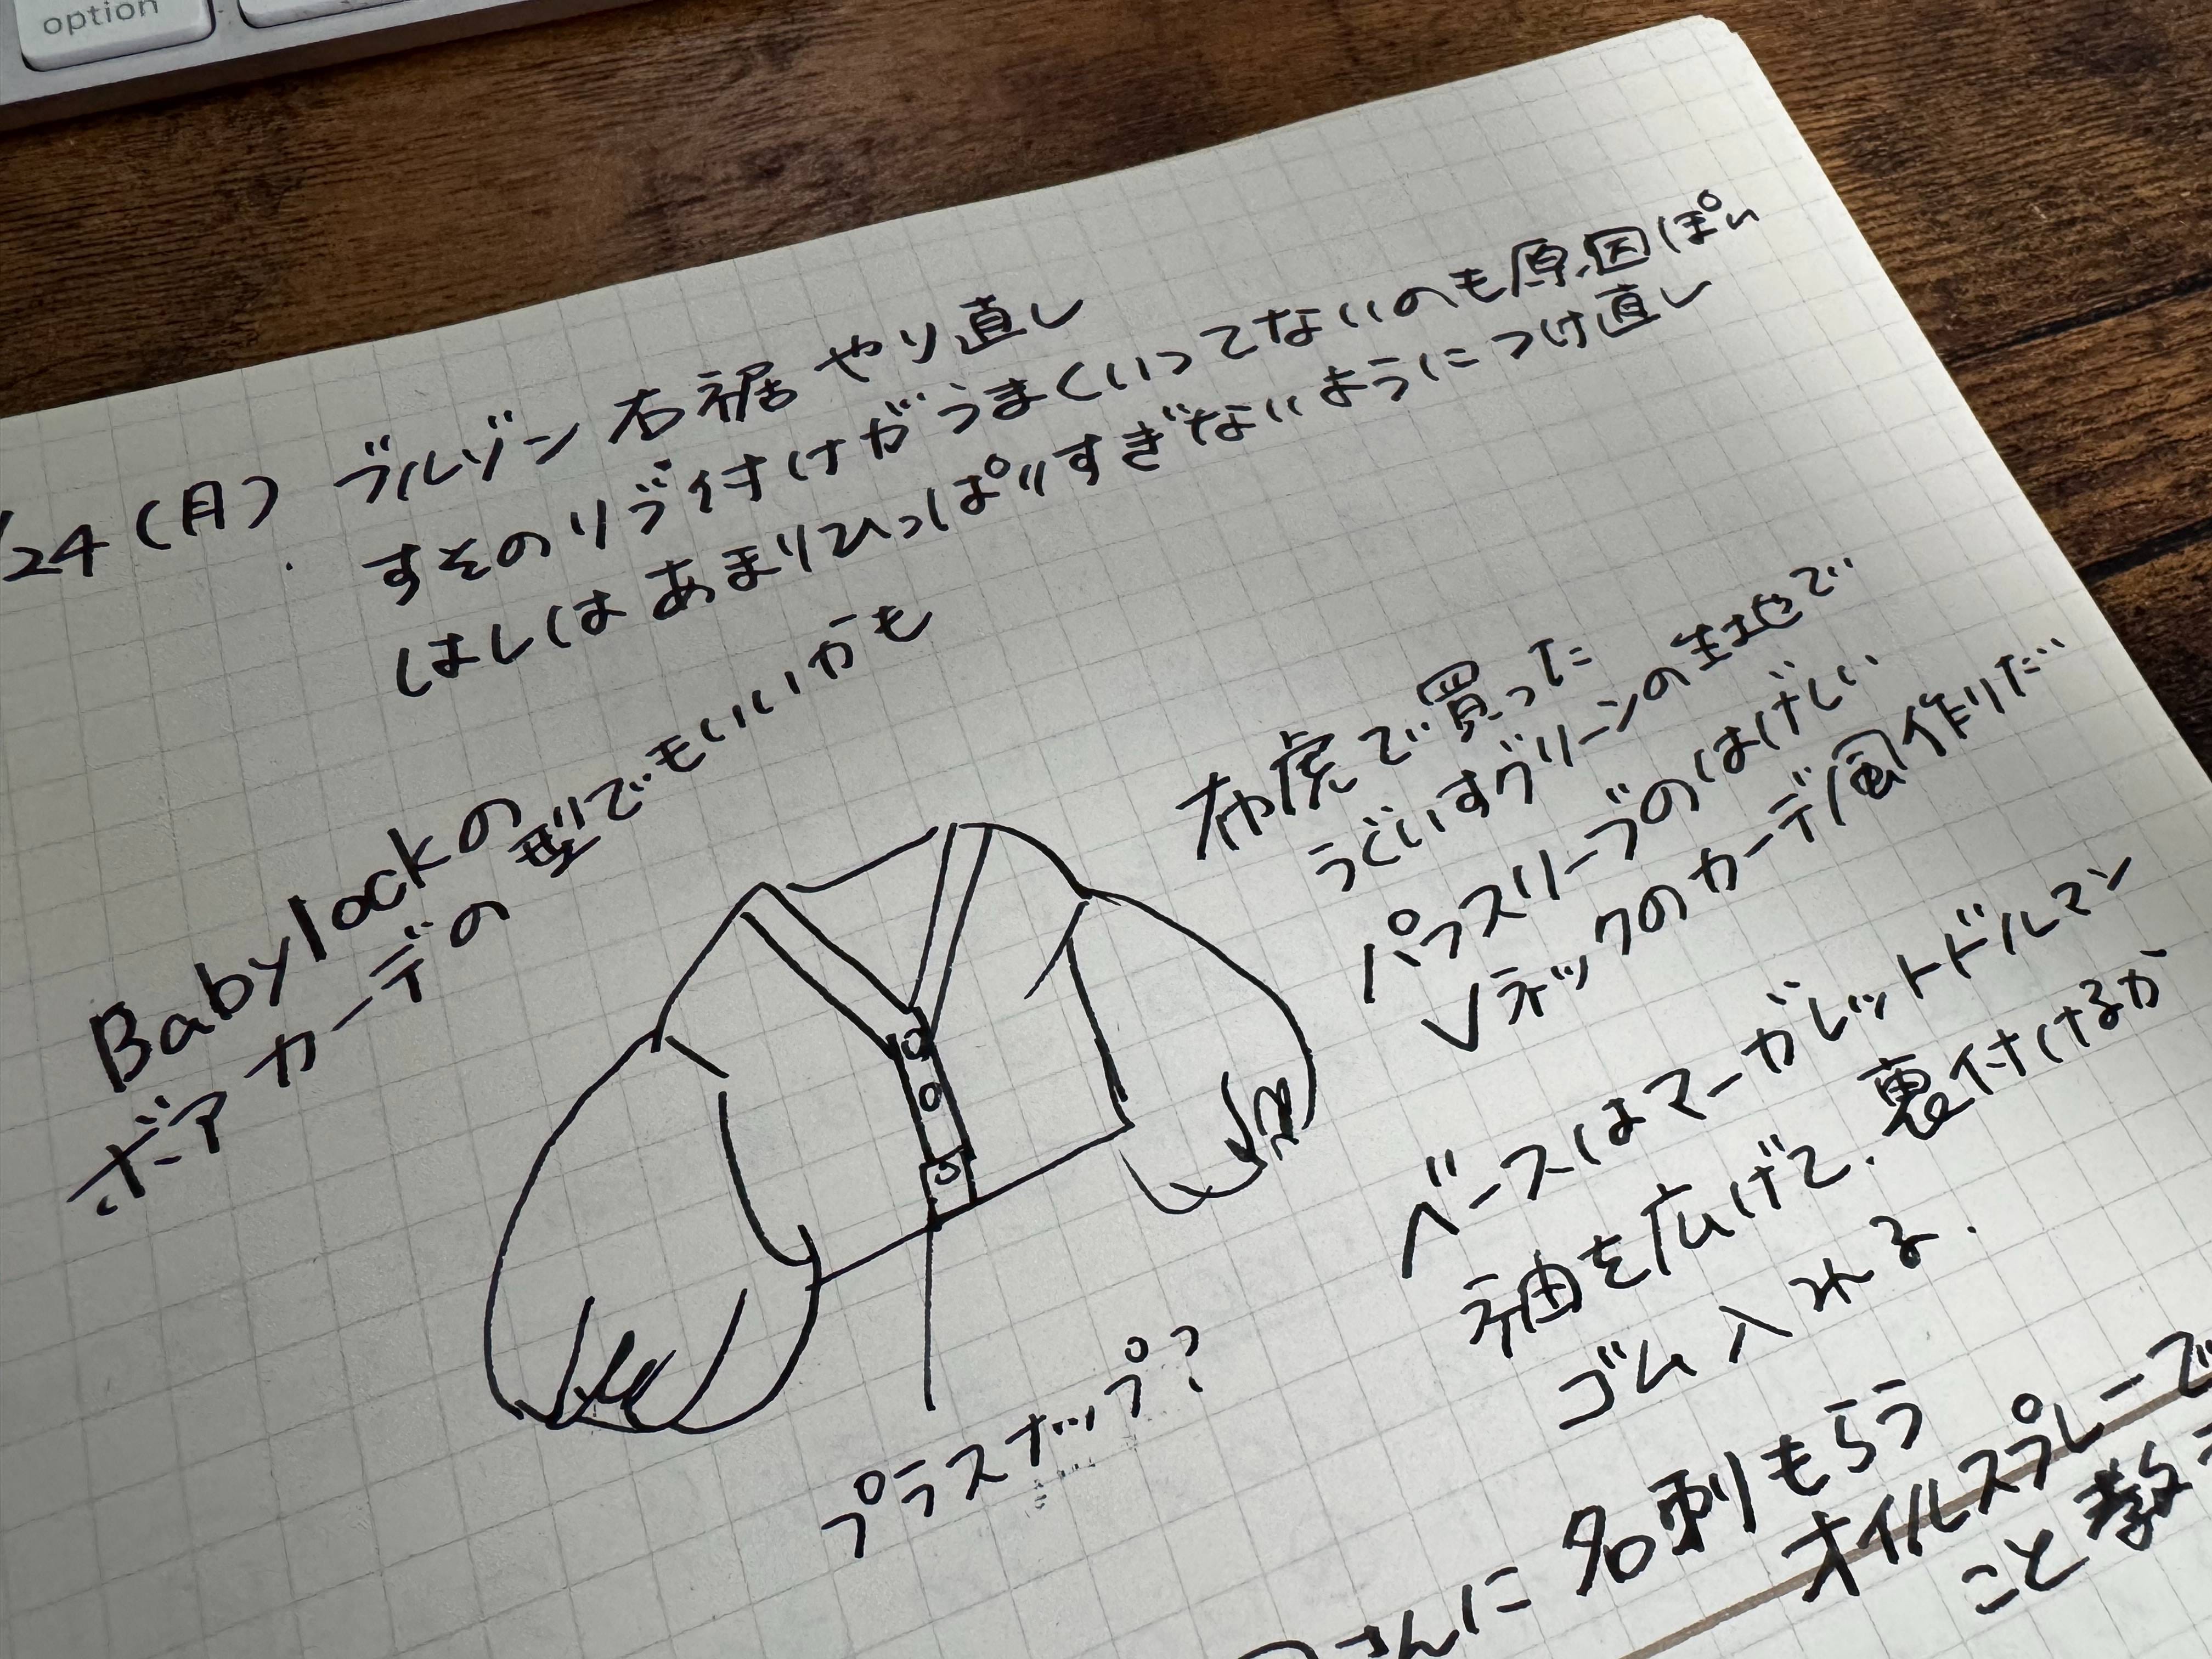 option
/24(月) ブルゾン 右裾 やり直し
すそのリブ付けがうまくいってないのも原因ぽい
はしはあまりひっぱりすぎないようにつけ直し
Babylockの
ボアカーデの型でもいいかも
布虎で買った
うぐいすグリーンの生地で
パフスリーブのはげしい
Vネックのカーデ風作りだ
ベースはマーガレットドルマン
袖を広げて、裏付けるか
ゴム入れる.
プラスナップ?
さんに名刺もらう
オイルスプレーで
こと教